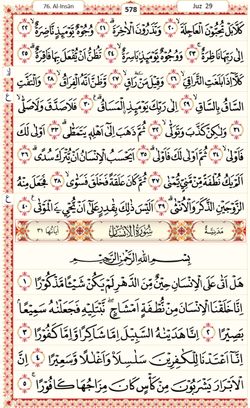 76. Al-Insān 578 Juz 29
كَلَّا بَلْ تُحِبُّوْنَ الْعَاجِلَةَ ٢٠ وَتَذَرُوْنَ الْاٰخِرَةَ ٢١ وُجُوْهٌ يَّوْمَئِذٍ نَّاضِرَةٌ ٢٢
اِلٰى رَبِّهَا نَاظِرَةٌ ٢٣ وَوُجُوْهٌ يَّوْمَئِذٍۭ بَاسِرَةٌ ٢٤ تَظُنُّ اَنْ يُّفْعَلَ بِهَا فَاقِرَةٌ ٢٥
كَلَّآ اِذَا بَلَغَتِ التَّرَاقِيَ ٢٦ وَقِيْلَ مَنْ رَاقٍ ٢٧ وَّظَنَّ اَنَّهُ الْفِرَاقُ ٢٨ وَالْتَفَّتِ
السَّاقُ بِالسَّاقِ ٢٩ اِلٰى رَبِّكَ يَوْمَئِذِ ۨالْمَسَاقُ ٣٠ فَلَا صَدَّقَ وَلَا صَلّٰى ٣١
وَلٰكِنْ كَذَّبَ وَتَوَلّٰى ٣٢ ثُمَّ ذَهَبَ اِلٰٓى اَهْلِهٖ يَتَمَطّٰى ٣٣ اَوْلٰى لَكَ
فَاَوْلٰى ٣٤ ثُمَّ اَوْلٰى لَكَ فَاَوْلٰى ٣٥ اَيَحْسَبُ الْاِنْسَانُ اَنْ يُّتْرَكَ سُدًى ٣٦
اَلَمْ يَكُ نُطْفَةً مِّنْ مَّنِيٍّ يُّمْنٰى ٣٧ ثُمَّ كَانَ عَلَقَةً فَخَلَقَ فَسَوّٰى ٣٨ فَجَعَلَ مِنْهُ
الزَّوْجَيْنِ الذَّكَرَ وَالْاُنْثٰى ٣٩ اَلَيْسَ ذٰلِكَ بِقٰدِرٍ عَلٰٓى اَنْ يُّحْيِۦَ الْمَوْتٰى ٤٠
مَدَنِيَّةٌ سُوْرَةُ الْاِنْسَانِ اٰيَاتُهَا ٣١
بِسْمِ اللّٰهِ الرَّحْمٰنِ الرَّحِيْمِ
هَلْ اَتٰى عَلَى الْاِنْسَانِ حِيْنٌ مِّنَ الدَّهْرِ لَمْ يَكُنْ شَيْئًا مَّذْكُوْرًا ١
اِنَّا خَلَقْنَا الْاِنْسَانَ مِنْ نُّطْفَةٍ اَمْشَاجٍ نَّبْتَلِيْهِ فَجَعَلْنٰهُ سَمِيْعًا
بَصِيْرًا ٢ اِنَّا هَدَيْنٰهُ السَّبِيْلَ اِمَّا شَاكِرًا وَّاِمَّا كَفُوْرًا ٣
اِنَّآ اَعْتَدْنَا لِلْكٰفِرِيْنَ سَلٰسِلَا۟ وَاَغْلٰلًا وَّسَعِيْرًا ٤ اِنَّ
الْاَبْرَارَ يَشْرَبُوْنَ مِنْ كَاْسٍ كَانَ مِزَاجُهَا كَافُوْرًا ٥